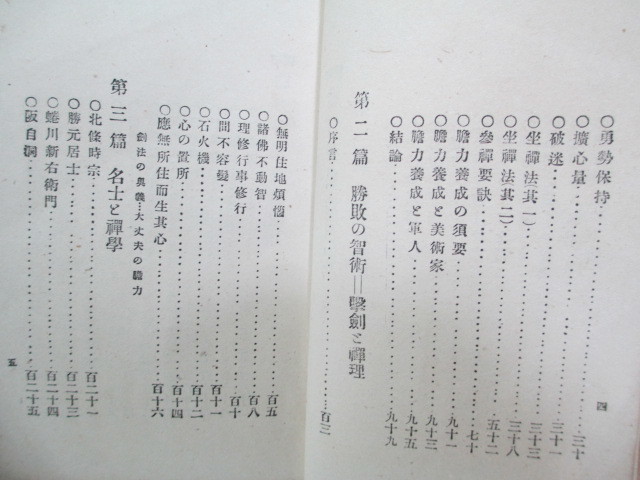 ○勇勢保持……………三十
○擴心量……………三十一
○破迷……………三十一
○坐禪法其(一)……………三十三
○坐禪法其(二)……………三十八
○參禪要訣……………五十二
○膽力養成の須要……………七十
○膽力養成と美術家……………九十一
○膽力養成と軍人……………九十三
○結論……………九十五
九十九
第二篇 勝敗の智術＝擊劍と禪理
○序言……………百三
四
○無明住地煩惱……………百五
○諸佛不動智……………百八
○理修行事修行……………百十
○間不容髮……………百十一
○石火機……………百十二
○心の置所……………百十四
○應無所住而生其心……………百十六
劍法の奧義…大丈夫の膽力
第三篇 名士と禪學
○北條時宗……………百二十一
○勝元居士……………百二十三
○蜷川新右衛門……………百二十四
○阪自洞……………百二十五
五